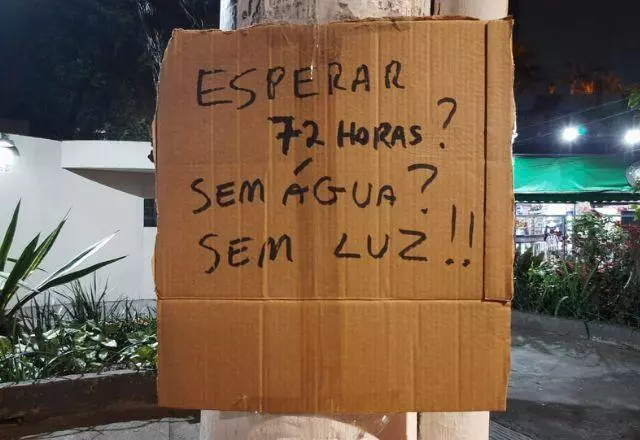 ESPERAR
72 HORAS?
SEM ÁGUA?
SEM LUZ!!